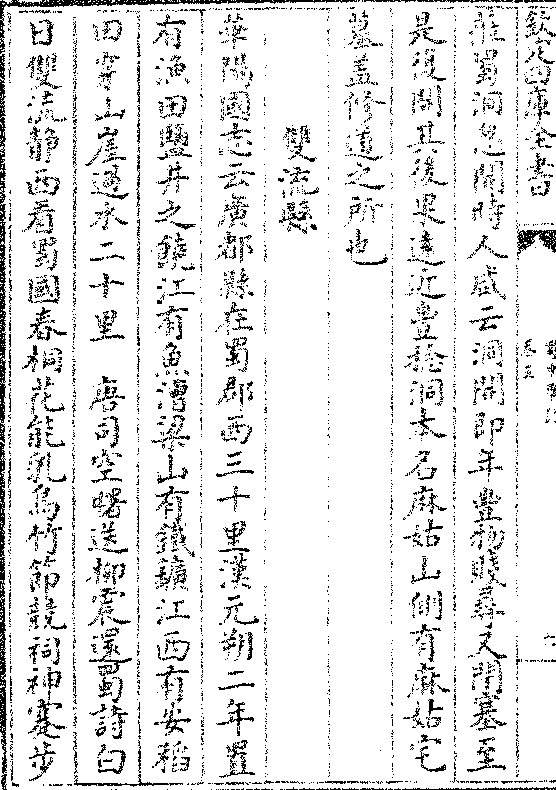 欽定四庫全書
莊蜀洞忽開時人咸云洞開即年豊物賤尋又閉塞至
是復開其後果遠近豊稔洞本名麻姑山側有麻姑宅
墓蓋修道之所也
雙流縣
華陽國志云廣都縣在蜀郡西三十里漢元朔二年置
有漁田鹽井之饒江有魚漕梁山有鐵鑛江西有安稻
田穿山崖過水二十里　唐司空曙送柳震還蜀詩白
日雙流静西看蜀國春桐花能乳鳥竹節競祠神蹇步